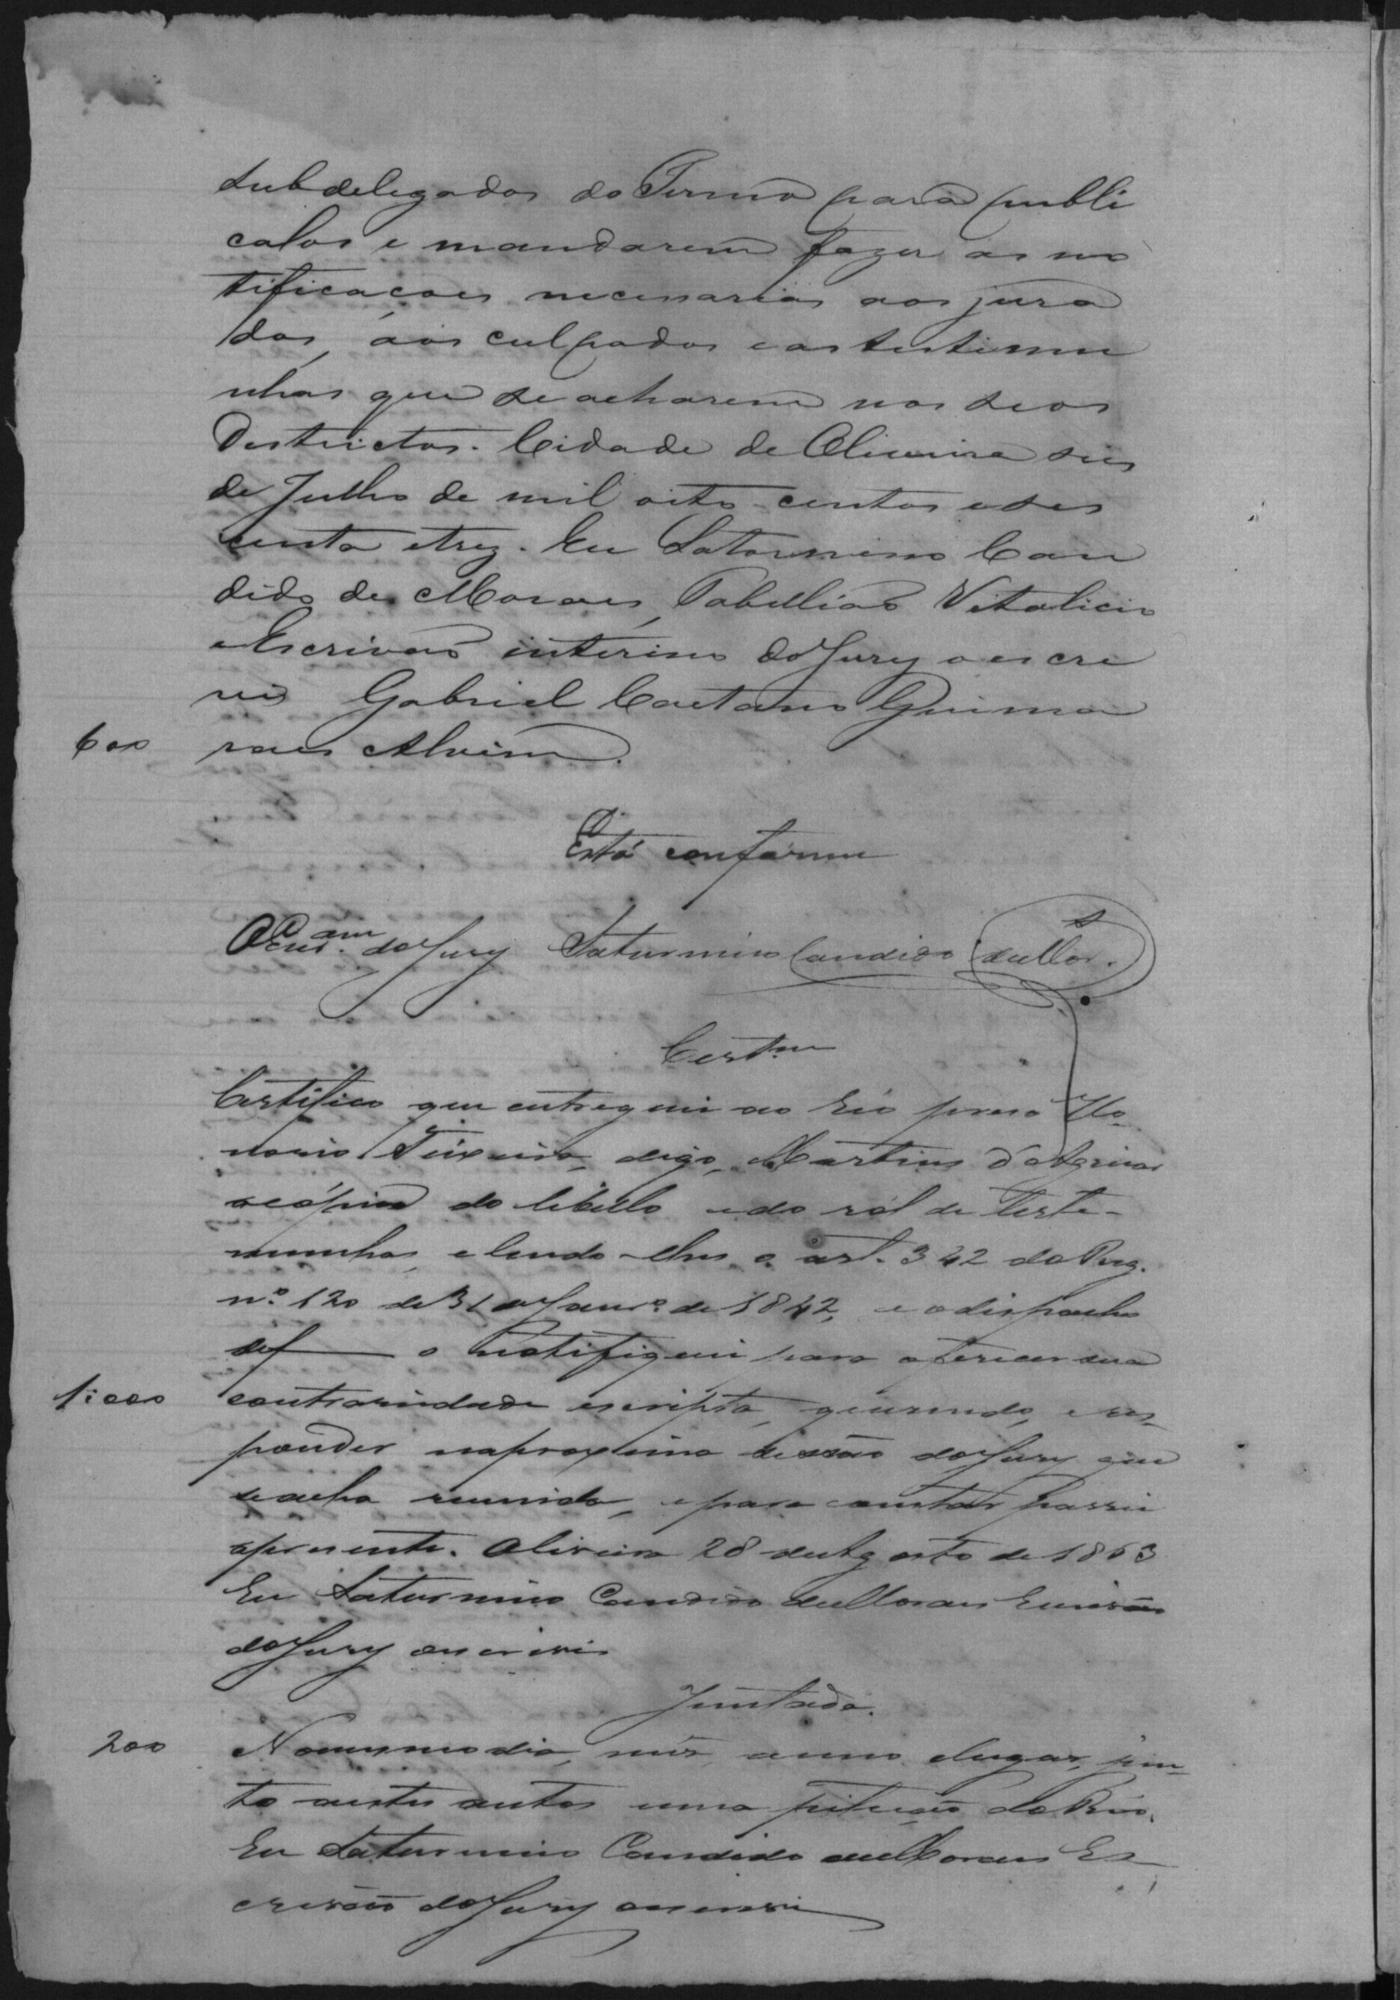 Subdelegados do Termo para publi
calos e mandarem fazer as no
tificaçoes necessarias aos jura
dos, aos culpados e as testimu
nhas que se acharem nos seos
Destrictos. Cidade de Oliveira seis
de Julho de mil oito centos e ses
centa e trez. Eu Saturnino Can
dido de Moraes, Tabellião Vitalicio
e Escrivão interino do Jury o escre
vi Gabriel Caetano Guima
600 raes Alvim.
Está conforme
O Escr.am do Jury Saturnino Candido de Mor.
Cert.m
Certifico que entreguei ao Reo preso Ho-
norio Teixeira, digo, Martins d'
a cópia do libello e do ról de teste-
munhas, e lendo-lhes o art. 342 do Reg.
nº 120 de 31 de Janrº de 1842, e o dispacho
def o notifiquei para oferecer sua
1:000 contrariedade escripta, querendo, e res-
ponder na proxima sessão do Jury que
se acha reunido, e para constar passei
a presente. Oliveira 28 de Agosto de 1863
Eu Saturnino Candido de Moraes Escrivão
do Jury o escrevi
Juntada.
200 No mesmo dia, mês, anno, e lugar, jun-
to a estes autos uma petição do Reo.
Eu Saturnino Candido de Moraes Es-
crivão do Jury o escrevi